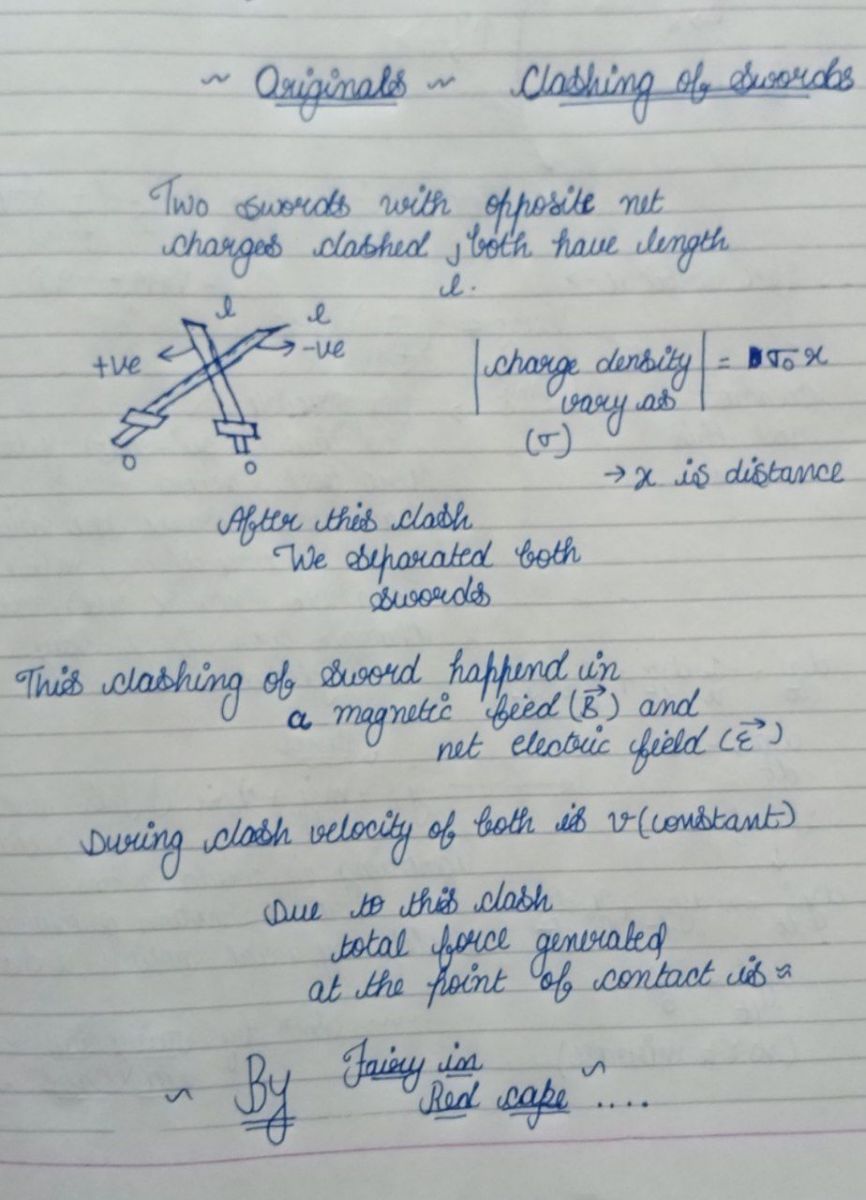 ~ Originals ~ Clashing of swords
Two swords with opposite net
charges clashed , both have length
l.
l l
+ve -ve
|charge density| = σ₀ x
vary as
(σ)
→ x is distance
O O
After this clash
We separated both
swords
This clashing of sword happend in
a magnetic feied (B⃗) and
net electric field (ε⃗)
During clash velocity of both is v (constant)
Due to this clash
total force generated
at the point of contact is ~
~ By Fairy in ~
Red cape ....